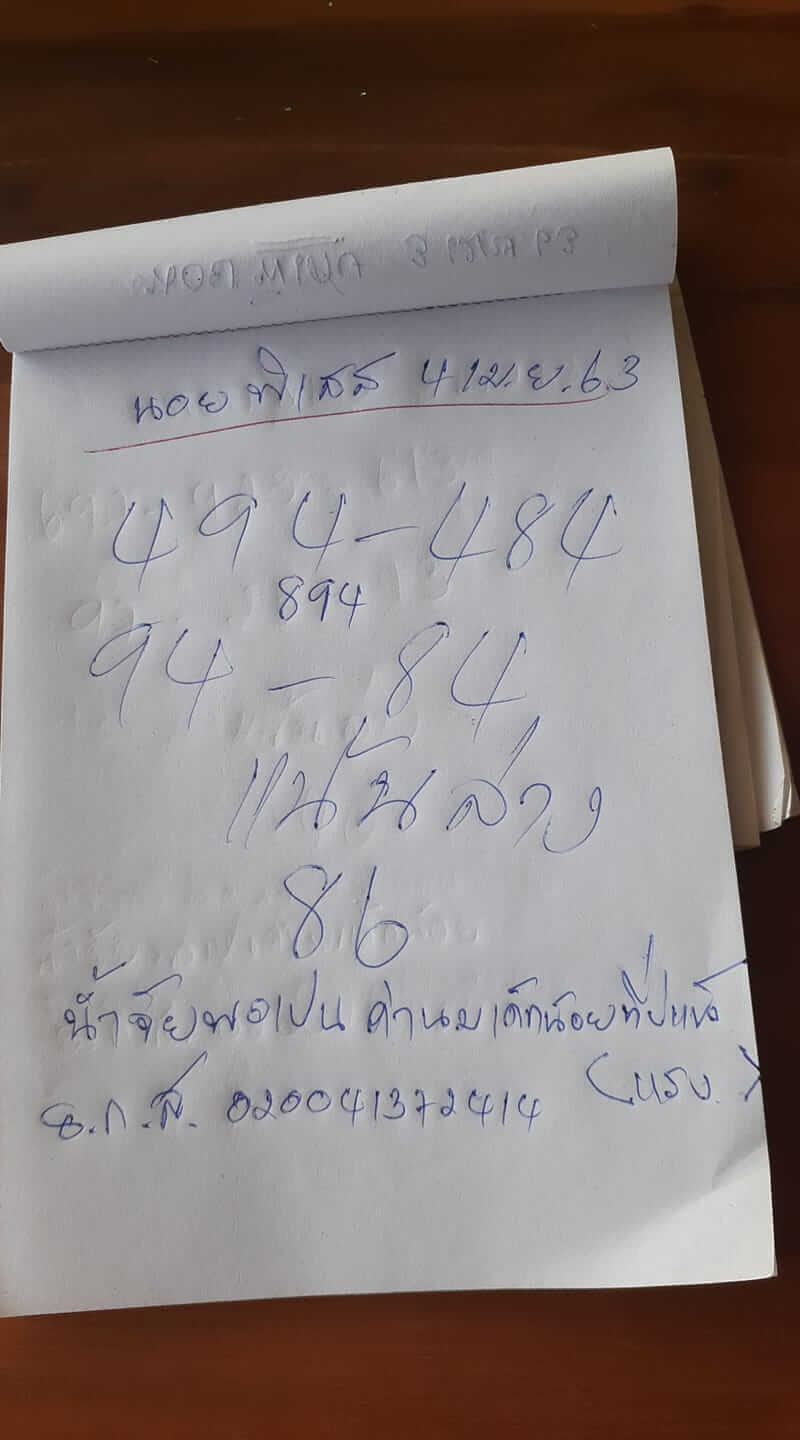 นอย พิเสส 4 เม.ย.63
494-484
894
94-84
แน่นล่าง
86
น้ำจัยพอเปน ค่านมเด็กน้อยที่
ธ.ก.ส. 020041372414 (แรง.)